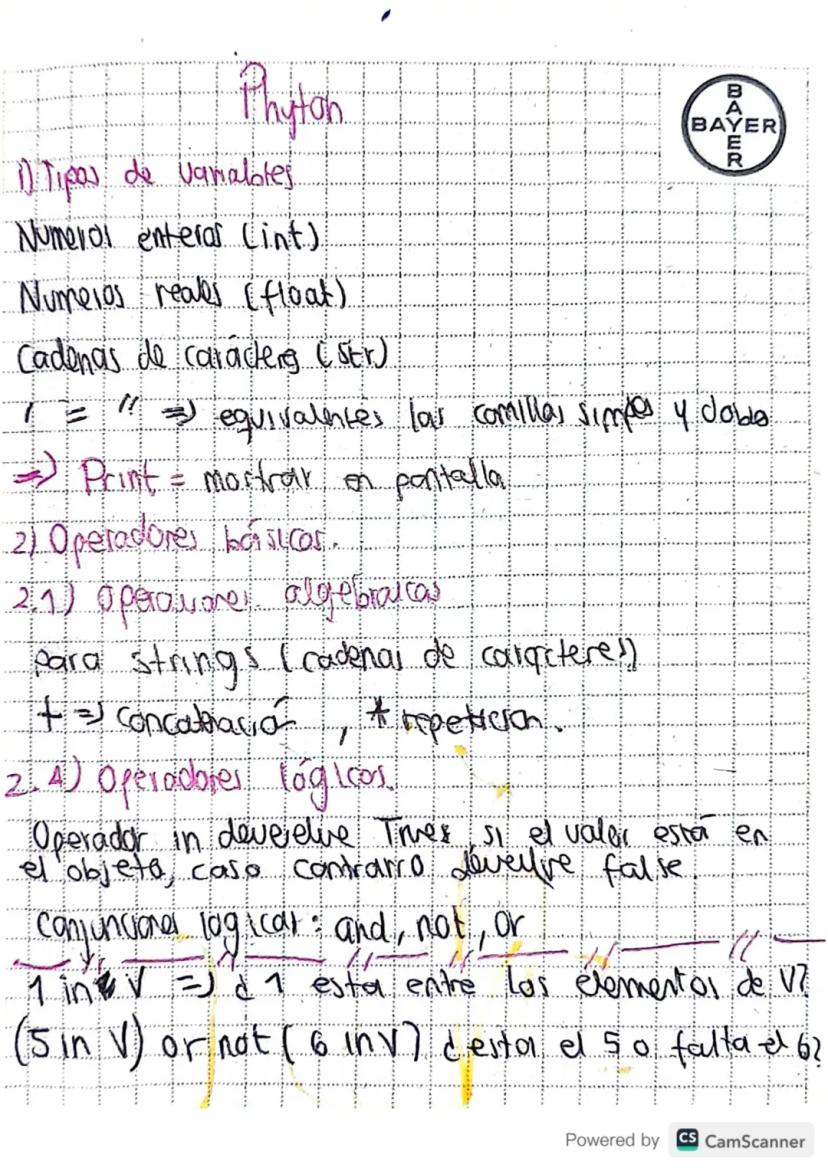 Phyton
BAYER
BAYER
1) Tipos de variables
Numeros enteros (int)
Numeros reales (float)
Cadenas de carácters (str)
' = " => equivalentes las comillas simples y doble
=> Print = mostrar en pantalla
2) Operadores básicos.
2.1) Operaciones algebraicas
para strings (cadenas de caracteres)
+ => concatnació , * repetición.
2.4) Operadores lógicos.
Operador in devuelve True, si el valor está en
el objeto, caso contrario devuelve false.
conjunciones logicas: and, not, or
1 in V => ¿ 1 esta entre los elementos de V?
(5 in V) or not ( 6 in V) ¿esta el 5 o falta el 6?
Powered by CS CamScanner